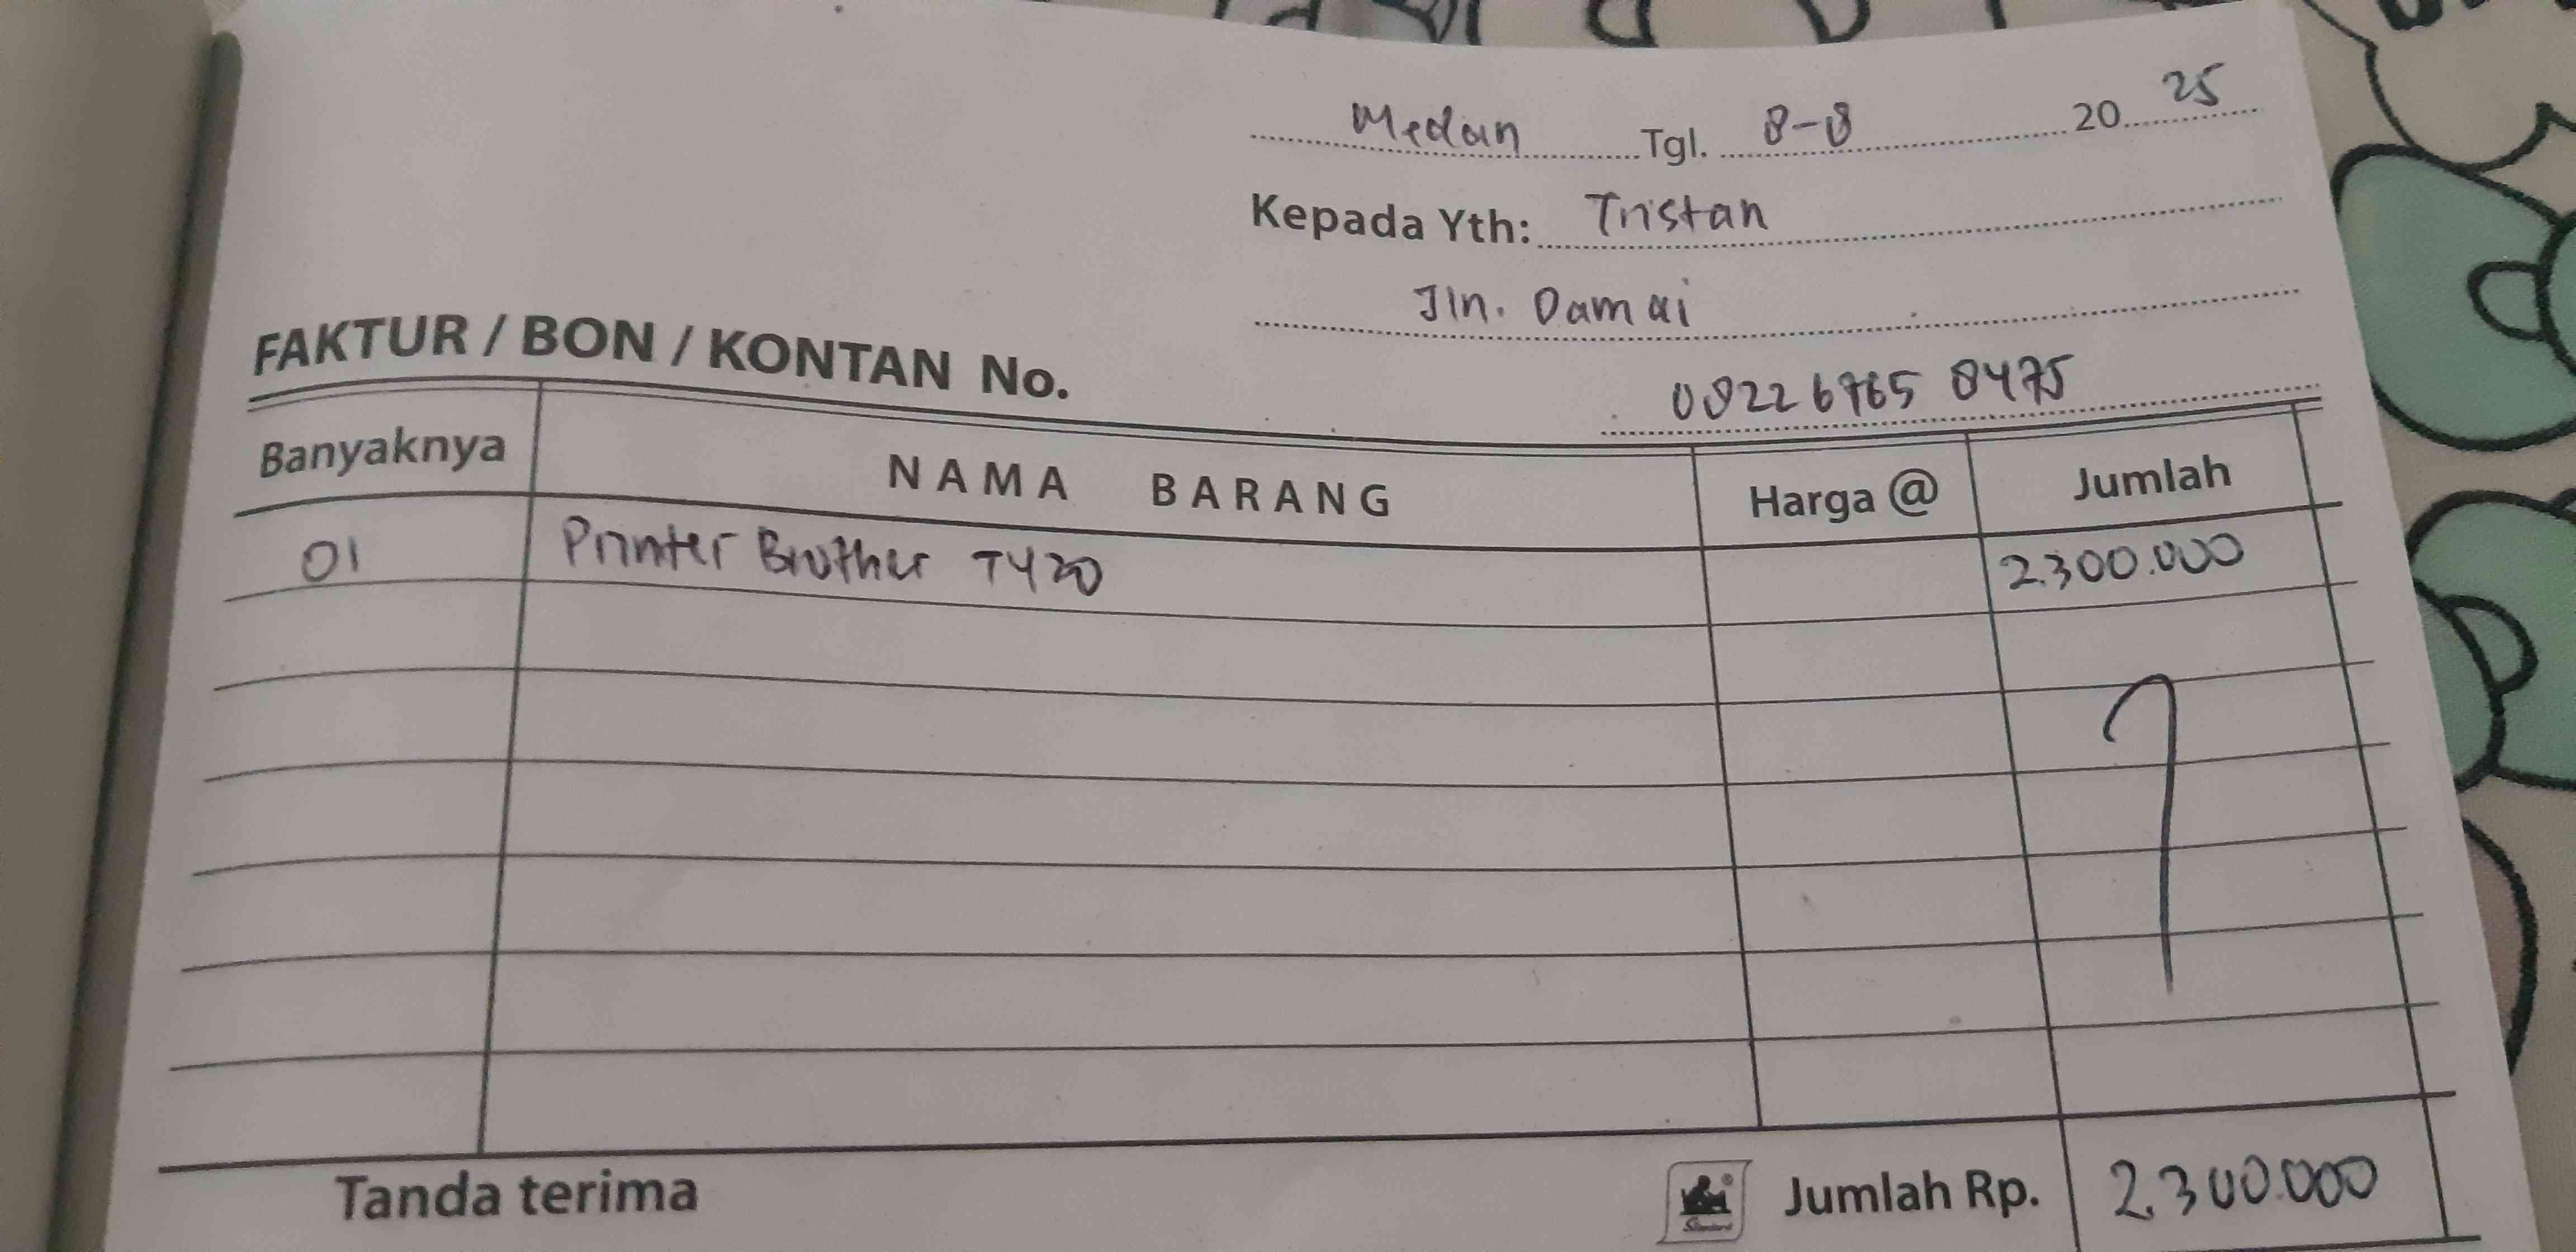 Medan Tgl. 8-8 20 25
Kepada Yth: Tristan
Jln. Damai
0822 6765 8475
FAKTUR / BON / KONTAN No.
Banyaknya NAMA BARANG Harga @ Jumlah
01 Printer Brother T420 2.300.000
Tanda terima Jumlah Rp. 2.300.000